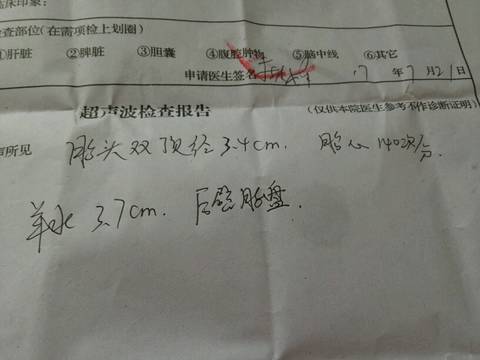 临床印象：
检查部位(在需项检上划圈)
①肝脏 ②脾脏 ③胆囊 ④腹腔肿物 ⑤脑中线 ⑥其它
申请医生签名 17年7月21日
超声波检查报告 (仅供本院医生参考不作诊断证明)
声所见 胎头双顶径3.4cm. 胎心140次/分.
羊水 3.7cm. 后壁胎盘.